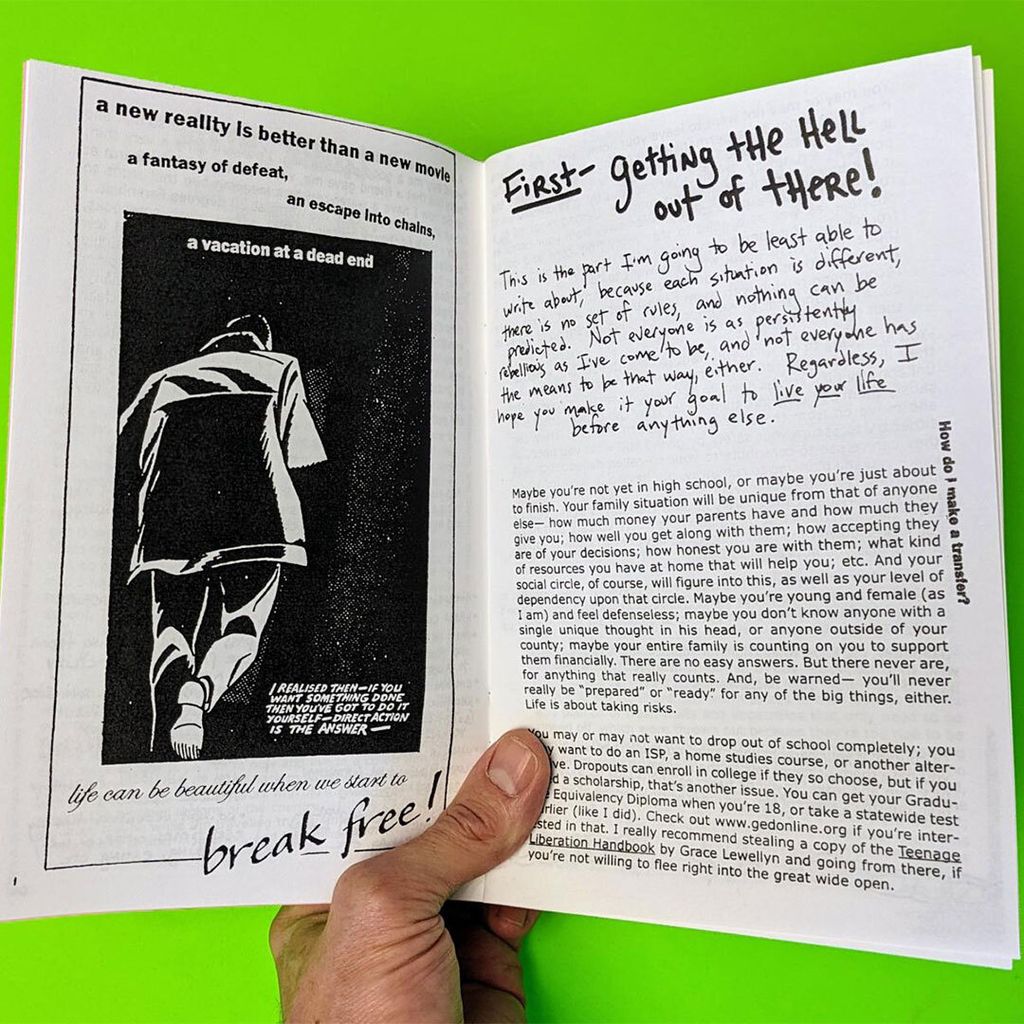 a new reality is better than a new movie
a fantasy of defeat,
an escape into chains,
a vacation at a dead end
I REALISED THEN—IF YOU
WANT SOMETHING DONE
THEN YOU'VE GOT TO DO IT
YOURSELF—DIRECT ACTION
IS THE ANSWER—
life can be beautiful when we start to
break free!
First- getting the Hell
out of there!
This is the part I'm going to be least able to
write about, because each situation is different,
there is no set of rules, and nothing can be
predicted. Not everyone is as persistently
rebellious as I've come to be, and not everyone has
the means to be that way, either. Regardless, I
hope you make it your goal to live your life
before anything else.
How do i make a transfer?
Maybe you're not yet in high school, or maybe you're just about
to finish. Your family situation will be unique from that of anyone
else— how much money your parents have and how much they
give you; how well you get along with them; how accepting they
are of your decisions; how honest you are with them; what kind
of resources you have at home that will help you; etc. And your
social circle, of course, will figure into this, as well as your level of
dependency upon that circle. Maybe you're young and female (as
I am) and feel defenseless; maybe you don't know anyone with a
single unique thought in his head, or anyone outside of your
county; maybe your entire family is counting on you to support
them financially. There are no easy answers. But there never are,
for anything that really counts. And, be warned— you'll never
really be "prepared" or "ready" for any of the big things, either.
Life is about taking risks.
You may or may not want to drop out of school completely; you
want to do an ISP, a home studies course, or another alter-
Dropouts can enroll in college if they so choose, but if you
a scholarship, that's another issue. You can get your Gradu-
Equivalency Diploma when you're 18, or take a statewide test
(like I did). Check out www.gedonline.org if you're inter-
in that. I really recommend stealing a copy of the Teenage
Liberation Handbook by Grace Lewellyn and going from there, if
you're not willing to flee right into the great wide open.